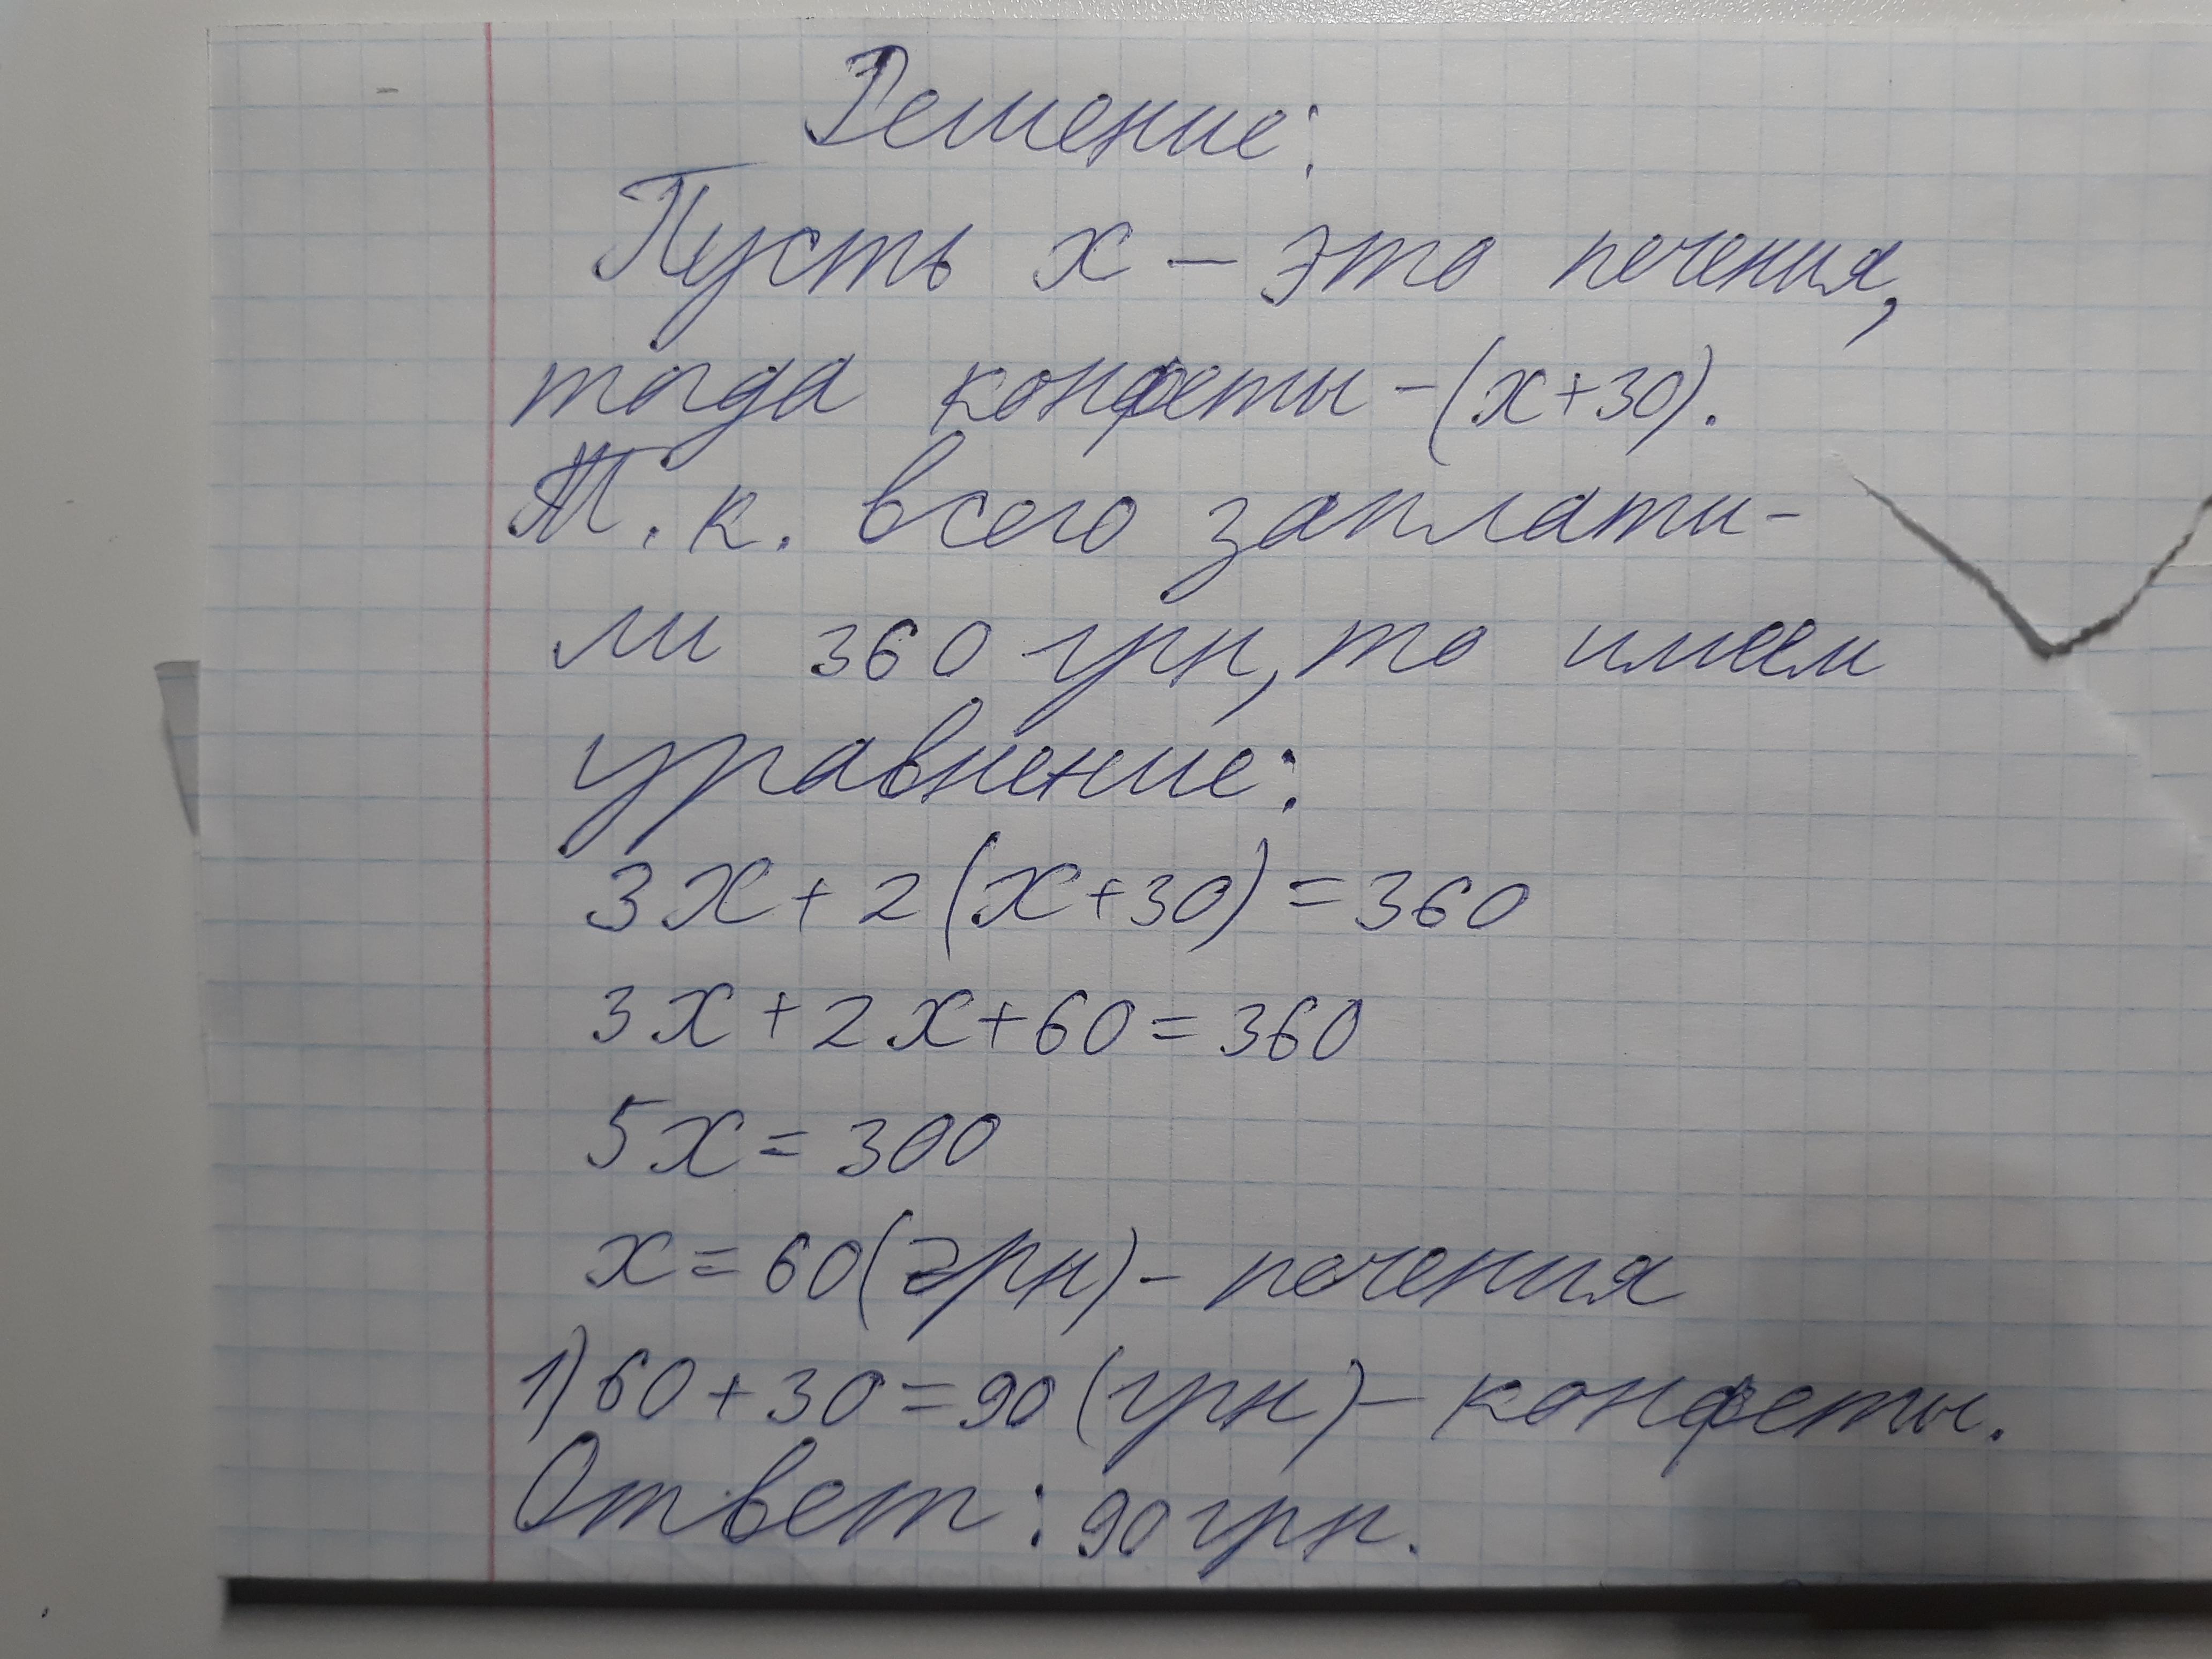 Решение:
Пусть x – это печения,
тогда конфеты – (x+30).
Т.к. всего заплати-
ли 360 грн, то имеем
уравнение:
3x+2(x+30)=360
3x+2x+60=360
5x=300
x=60(грн)– печения
1)60+30=90(грн)– конфеты.
Ответ: 90грн.